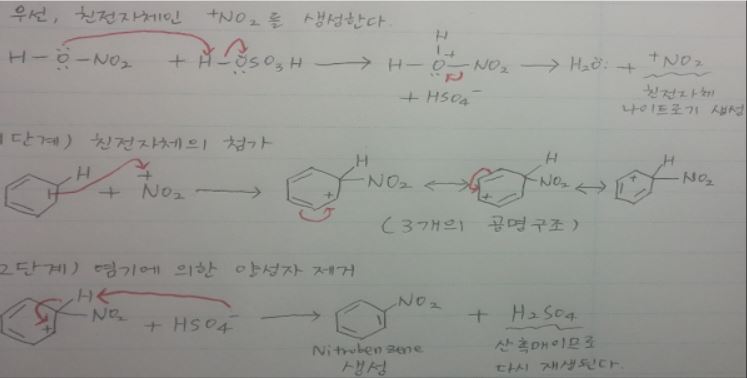 우선, 친전자체인 ⁺NO₂를 생성한다.
H-Ö-NO₂ + H-ÖSO₃H → H-O⁺(H)-NO₂ → H₂Ö: + ⁺NO₂
+ HSO₄⁻
친전자체
나이트로기 생성
1단계) 친전자체의 첨가
H + ⁺NO₂ → H NO₂ + ↔ H NO₂ + ↔ H NO₂ +
(3개의 공명구조)
2단계) 염기에 의한 양성자 제거
H NO₂ + + HSO₄⁻ → NO₂ + H₂SO₄
Nitrobenzene
생성
산촉매이므로
다시 재생된다.